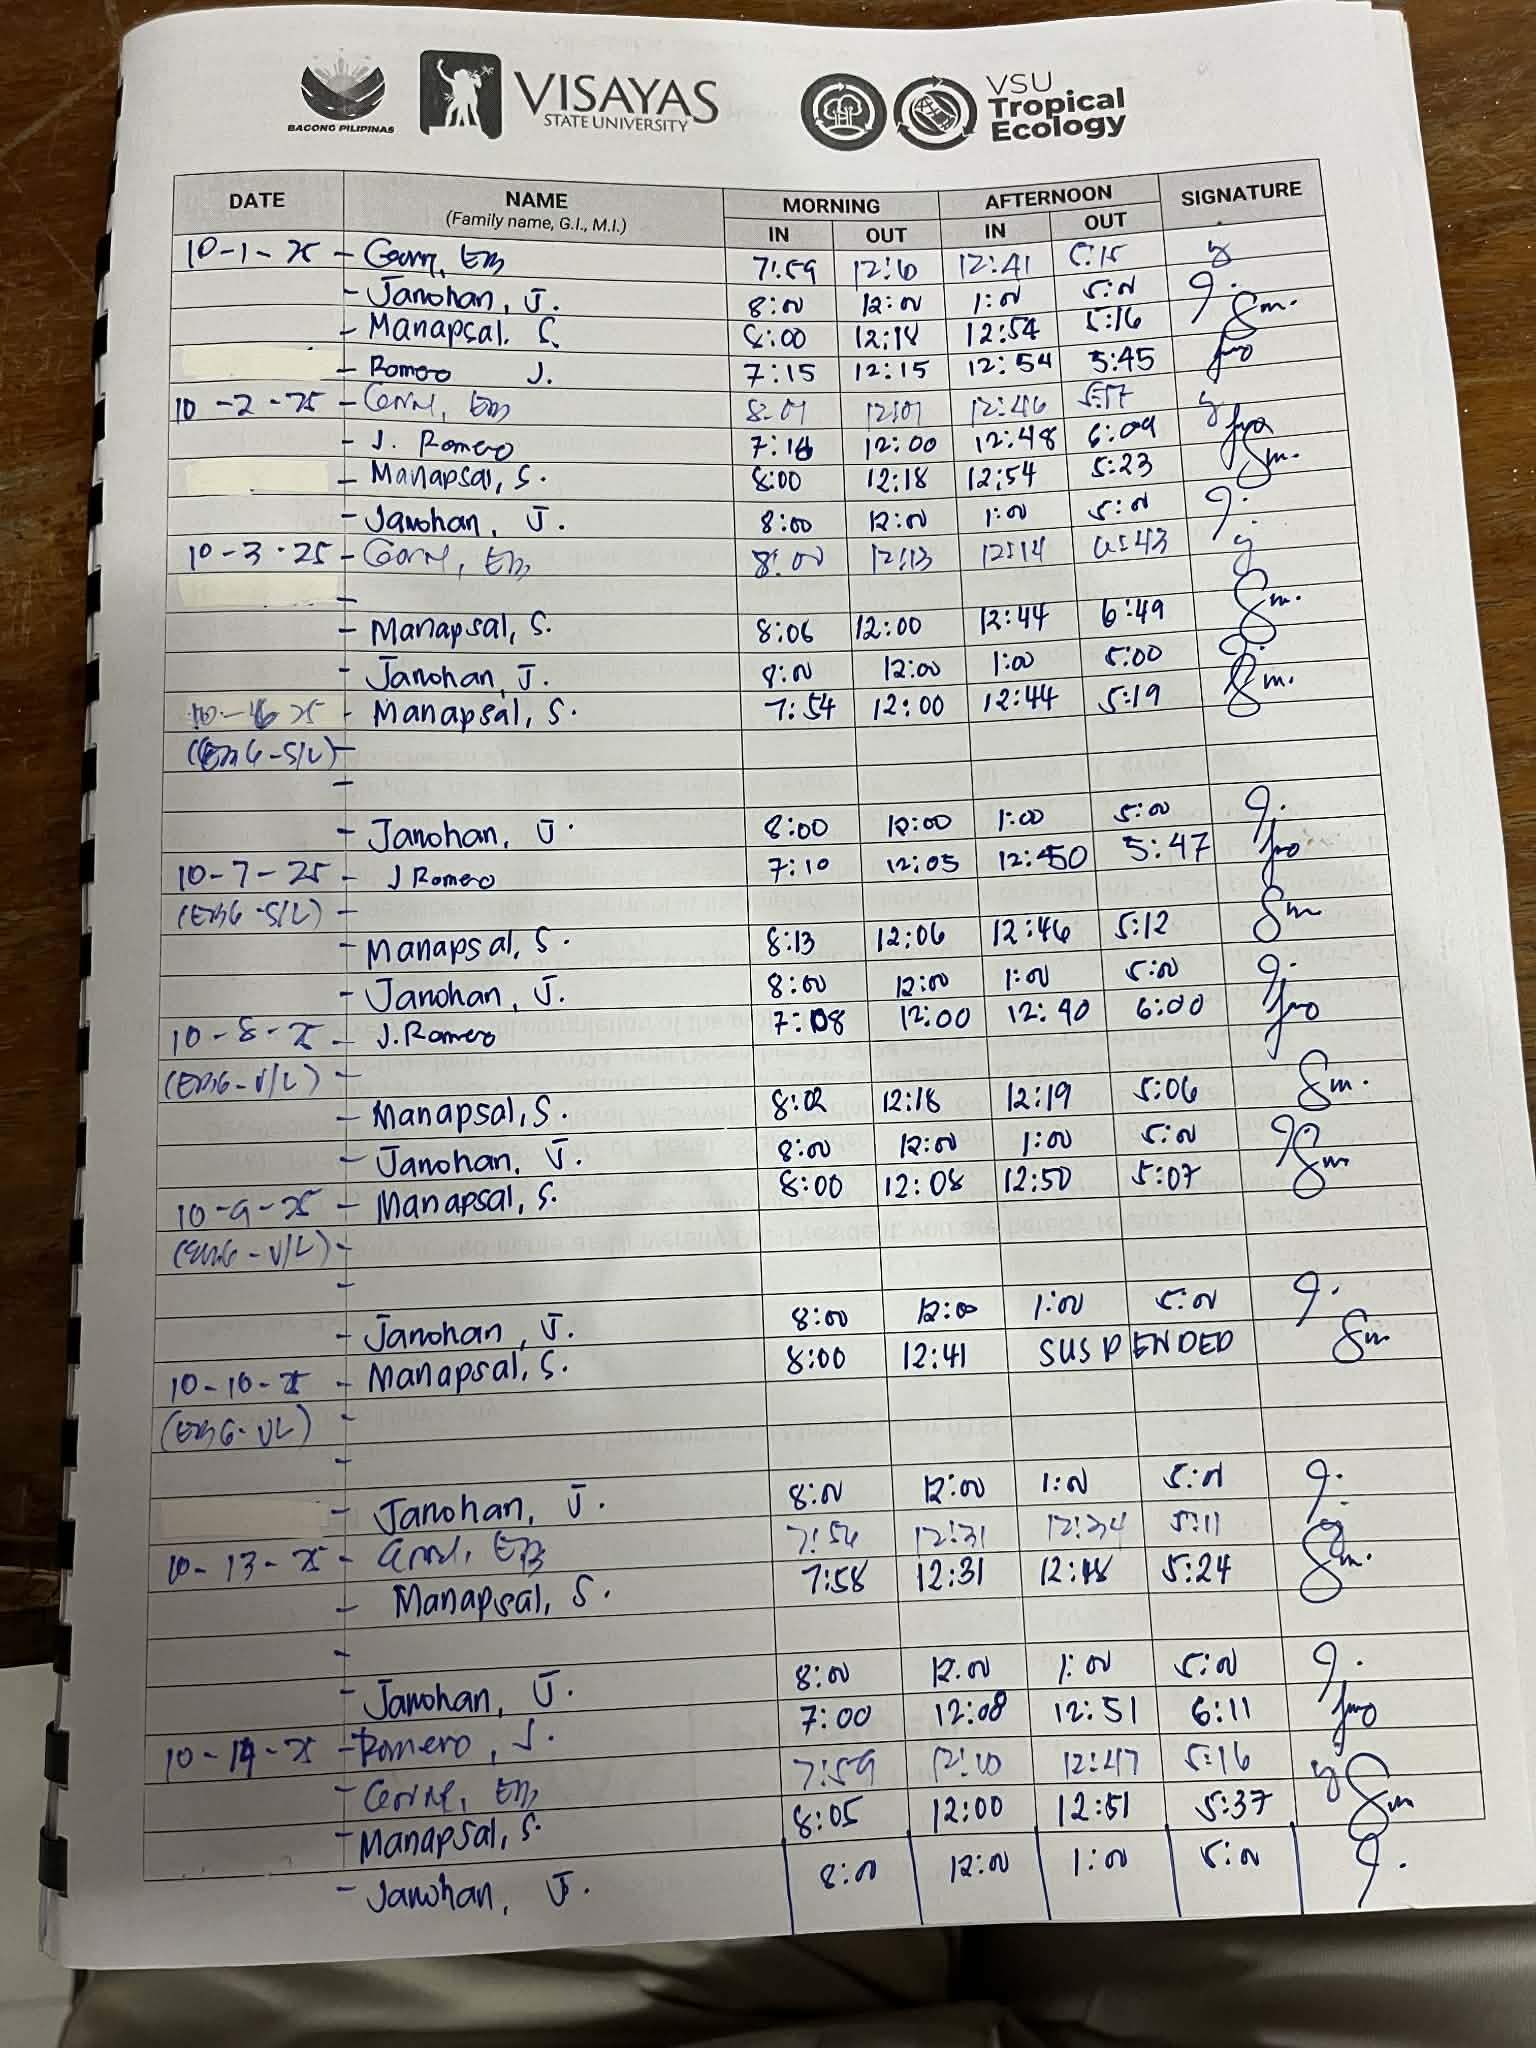 BAGONG PILIPINAS
VISAYAS
STATE UNIVERSITY
VSU
Tropical
Ecology
DATE NAME MORNING AFTERNOON SIGNATURE
(Family name, G.I., M.I.) IN OUT IN OUT
10-1-25 - EB 7:59 12:10 12:41 5:15
- Janohan, J. 8:00 12:00 1:00 5:00
- Manapsal. S. 8:00 12:18 12:54 5:16 Sm.
- Romero J. 7:15 12:15 12:54 5:45
10-2-25 - EB 8:01 12:01 12:46 5:17
- J. Romero 7:16 12:00 12:48 6:09
- Manapsal, S. 8:00 12:18 12:54 5:23 Sm.
- Janohan, J. 8:00 12:00 1:00 5:00
10-3-25 - EB 8:00 12:13 12:14 5:43
-
- Manapsal, S. 8:06 12:00 12:44 6:49 Sm.
- Janohan, J. 8:00 12:00 1:00 5:00
10- 25 - Manapsal, S. 7:54 12:00 12:44 5:19 Sm.
(EBG-S/L) -
-
- Janohan, J. 8:00 12:00 1:00 5:00
10-7-25 - J Romero 7:10 12:05 12:50 5:47
(EBG-S/L) -
- Manapsal, S. 8:13 12:06 12:46 5:12 Sm
- Janohan, J. 8:00 12:00 1:00 5:00
10-8-25 - J. Romero 7:08 12:00 12:40 6:00
(EBG-V/L) -
- Manapsal, S. 8:02 12:18 12:19 5:06 Sm.
- Janohan, J. 8:00 12:00 1:00 5:00
10-9-25 - Manapsal, S. 8:00 12:08 12:50 5:07 Sm
(EBG-V/L) -
-
- Janohan, J. 8:00 12:00 1:00 5:00
10-10-25 - Manapsal, S. 8:00 12:41 SUSPENDED Sm
(EBG-VL) -
-
- Janohan, J. 8:00 12:00 1:00 5:00
10-13-25 - EB 7:56 12:31 12:34 5:11
- Manapsal, S. 7:58 12:31 12:48 5:24 Sm.
-
- Janohan, J. 8:00 12:00 1:00 5:00
10-14-25 - Romero, J. 7:00 12:08 12:51 6:11
- EB 7:59 12:10 12:47 5:16
- Manapsal, S. 8:05 12:00 12:51 5:37 Sm
- Janohan, J. 8:00 12:00 1:00 5:00